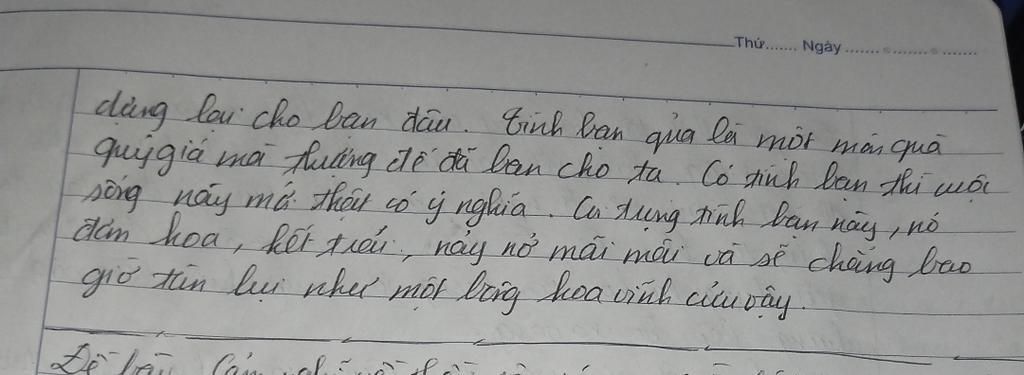 Thứ....... Ngày ....... ........ .......
dàng lại cho bạn đâu. Tình bạn qủa là một món quà
quý giá mà thượng đế đã ban cho ta. Có tình bạn thì cuộc
sống này mới thật có ý nghĩa. Cứ dựng tình bạn này, nó
đơm hoa, kết trái, nảy nở mãi mãi và sẽ chẳng bao
giờ tàn lụi như một bông hoa vĩnh cửu vậy.
Đề bài